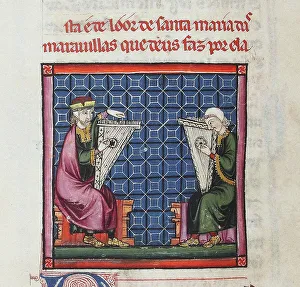 sta é de loor de santa maria das
maravillas que deus faz por ela